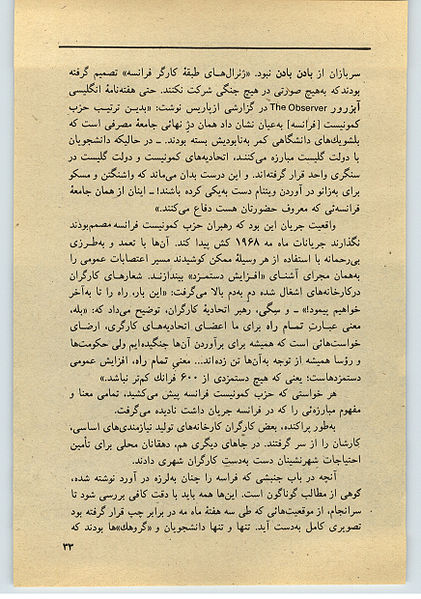 سربازان از بادن بادن نبود. «ژنرال‌های طبقهٔ کارگر فرانسه» تصمیم گرفته
بودند که به‌هیچ صورتی در هیچ جنگی شرکت نکنند. حتی هفته‌نامهٔ انگلیسی
آبزرور The Observer در گزارشی ازپاریس نوشت: «بدین ترتیب حزب
کمونیست [فرانسه] به‌عیان نشان داد همان دژ نهائی جامعهٔ مصرفی است که
بلشویك‌های دانشگاهی کمر به‌نابودیش بسته بودند. ـ در حالیکه دانشجویان
با دولت گلیست مبارزه می‌کنند، اتحادیه‌های کمونیست و دولت گلیست در
سنگری واحد قرار گرفته‌اند. و این درست بدان می‌ماند که واشنگتن و مسکو
برای به‌زانو در آوردن ویتنام دست به‌یکی کرده باشند! ـ اینان از همان جامعهٔ
فرانسه‌ئی که معروف حضورتان هست دفاع می‌کنند.»
واقعیت جریان این بود که رهبران حزب کمونیست فرانسه مصمم‌بودند
نگذارند جریانات ماه مه ۱۹۶۸ کش پیدا کند. آن‌ها با تعمد و به‌طرزی
بی‌رحمانه با استفاده از هر وسیلهٔ ممکن کوشیدند مسیر اعتصابات عمومی را
به‌همان مجرای آشنای «افزایش دستمزد» بیندازند. شعارهای کارگران
درکارخانه‌های اشغال شده دم به‌دم بالا می‌گرفت: «این بار، راه را تا به‌آخر
خواهیم پیمود!» ـ و سگی، رهبر اتحادیهٔ کارگران، توضیح می‌داد که: «بله،
معنی عبارتِ تمام راه برای ما اعضای اتحادیه‌های کارگری، ارضای
خواست‌هائی است که همیشه برای برآوردن آن‌ها جنگیده‌ایم ولی حکومت‌ها
و رؤسا همیشه از توجه به‌آن‌ها تن زده‌اند... معنی تمام راه، افزایش عمومی
دستمزدهاست؛ یعنی که هیچ دستمزدی از ۶۰۰ فرانك کم‌تر نباشد.»
هر خواستی که حزب کمونیست فرانسه پیش می‌کشید، تمامی معنا و
مفهوم مبارزه‌ئی را که در فرانسه جریان داشت نادیده می‌گرفت.
به‌طور پراکنده، بعض کارگران کارخانه‌های تولید نیازمندی‌های اساسی،
کارشان را از سر گرفتند. در جاهای دیگری هم، دهقانان محلی برای تأمین
احتیاجاتِ شهرنشینان دست به‌دستِ کارگران شهری دادند.
آنچه در باب جنبشی که فراسه را چنان به‌لرزه در آورد نوشته شده،
کوهی از مطالب گوناگون است. این‌ها همه باید با دقت کافی بررسی شود تا
سرانجام، از موقعیت‌هائی که طی سه هفتهٔ ماه مه در برابر چپ قرار گرفته بود
تصویری کامل به‌دست آید. تنها و تنها دانشجویان و «گروهك»ها بودند که
۳۳